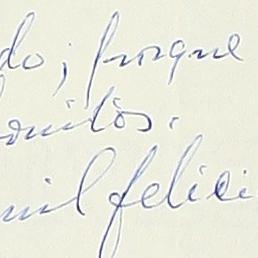 do; porque
onitos.
mil felici